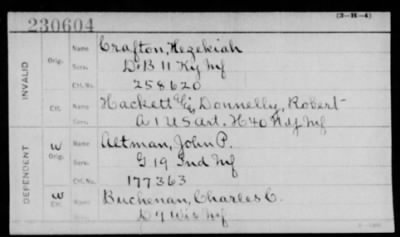 (3-H-4)
230604
INVALID
Orig.
Name Crafton, Hezekiah
Serv. D & B 11 Ky Inf
Ctf. No. 258620
Ctf. Name Hackett Donnelly, Robert
Serv. A 1 U S art. H 40 N.Y. Inf
DEPENDENT
W
Orig.
Name Altman, John P.
Serv. G 19 Ind Inf
Ctf. No. 177363
W
Ctf. Name Buchenan, Charles C.
Serv. D 7 Wis Inf